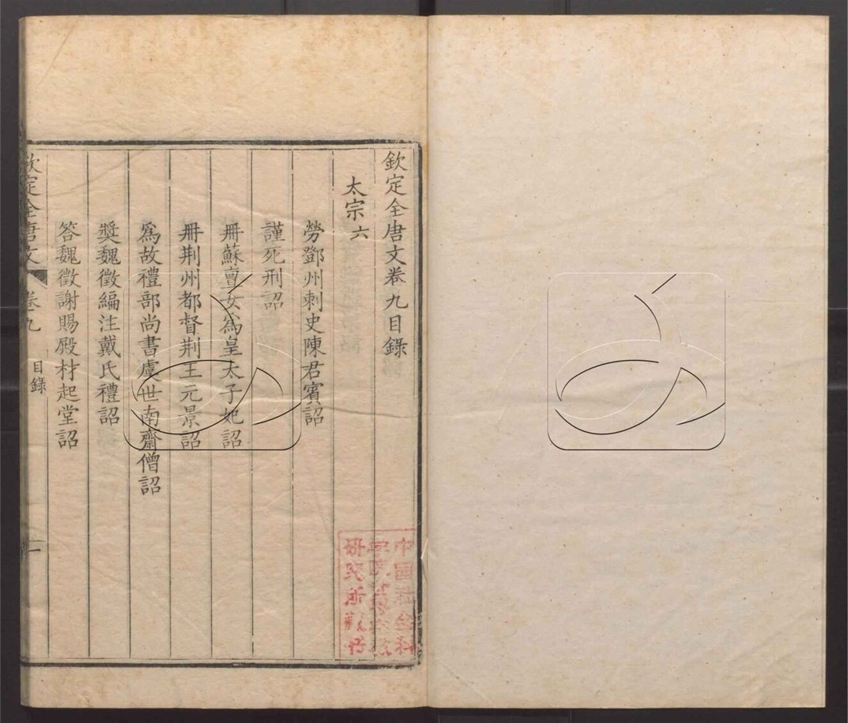 欽定全唐文卷九目錄
太宗 六
勞鄧州刺史陳君賓詔
謹死刑詔
冊蘇亶女為皇太子妃詔
冊荆州都督荆王元景詔
為故禮部尚書虞世南齋僧詔
獎魏徵編注戴氏禮詔
答魏徵謝賜殿材起堂詔
欽定全唐文 卷九 目錄 一
中國社會科
研究所